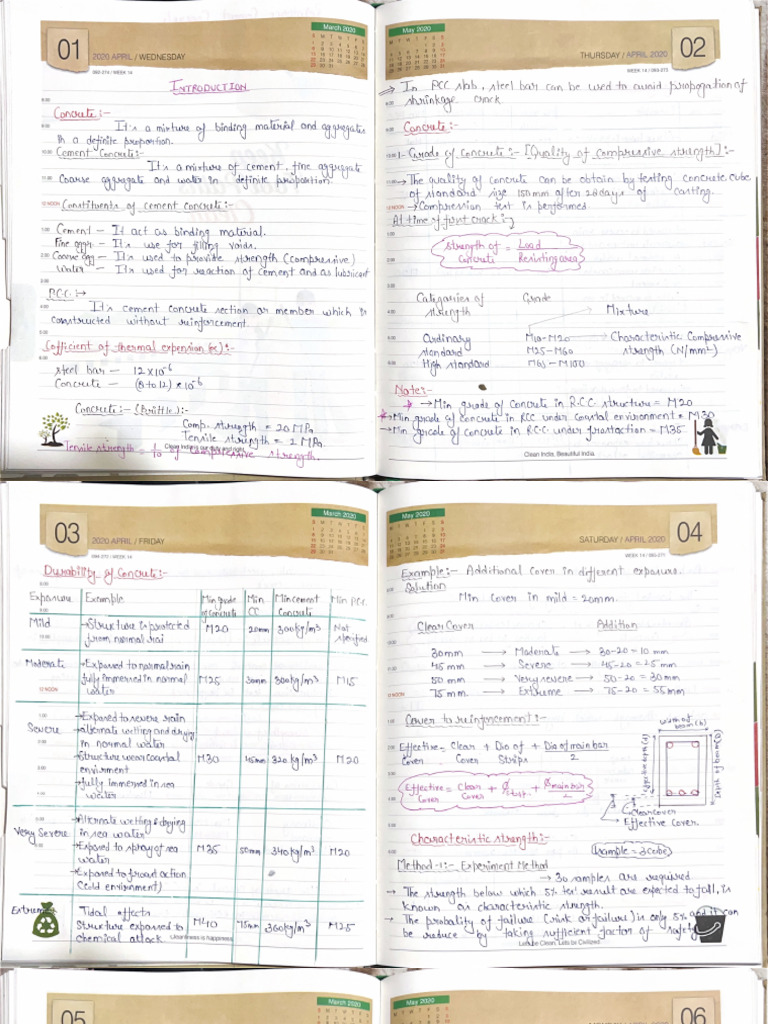 01
2020 APRIL / WEDNESDAY
092-274 / WEEK 14
March 2020
INTRODUCTION
Concrete:-
It's a mixture of binding material and aggregates
in a definite proportion.
Cement Concrete:-
It's a mixture of cement, fine aggregate
Coarse aggregate and water in definite proportion.
12 NOON
Constituents of cement concrete:-
Cement – It act as binding material.
Fine aggr – It's use for filling voids.
Coarse agg – It's used to provide strength (compressive)
Water – It's used for reaction of cement and as lubricant
P.C.C. :→
It's cement concrete section or member which is
constructed without reinforcement.
Cofficient of thermal expension (∝):-
steel bar – 12×10⁻⁶
Concrete – (8 to 12) × 10⁻⁶
Concrete:- (Brittle):-
Comp. strength = 20 MPa
Tensile strength = 2 MPa.
Tensile strength = 1/10 of compressive strength.
May 2020
THURSDAY / APRIL 2020
02
WEEK 14 / 093-273
→ In PCC slab, steel bar can be used to avoid propogation of
shrinkage crack
Concrete:-
1- Grade of Concrete:- [Quality of compressive strength]:-
→ The quality of concrete can be obtain by testing concrete cube
of standard size 150mm after 28 days of casting.
12 NOON
→ Compression test is performed
At time of first crack:-
Strength of Concrete = Load / Resisting area
Categories of strength Grade
Mixture
Ordinary M10-M20 → Characteristic Compressive
standard M25-M60 strength (N/mm²)
High standard M65-M100
Note:-
→ Min grade of Concrete in R.C.C. structure = M20
→ Min grade of concrete in RCC under coastal environment = M30
→ Min grade of concrete in R.C.C. under frostaction = M35
Clean India, Beautiful India.
03
2020 APRIL / FRIDAY
094-272 / WEEK 14
March 2020
Durability of Concrete:-
Exposure Example Min grade of Concrete Min CC Min cement Concrete Min P.C.C.
Mild → Structure is protected from normal rai M20 20mm 300kg/m³ Not specified
Moderate → Exposed to normal rain fully immersed in normal water M25 30mm 300kg/m³ M15
12 NOON
Severe → Exposed to severe rain
→ alternate wetting and drying in normal water
→ Structure wear coastal envirment
→ fully immersed in sea water
M30 45mm 320kg/m³ M20
Very Severe → Alternate wetting & drying in sea water
→ Exposed to spray of sea water
→ Exposed to froad action (cold environment)
M35 50mm 340kg/m³ M20
Extreme Tidal effects
Structure exposed to chemical attack.
M40 75mm 360kg/m³ M25
Cleanliness is happiness
May 2020
SATURDAY / APRIL 2020
04
WEEK 14 / 095-271
Example:- Additional Cover in different exposure.
Solution
Min cover in mild = 20mm.
Clear Cover Addition
30mm → Moderate → 30-20 = 10 mm
45 mm → Severe → 45-20 = 25 mm
50 mm → Very severe → 50-20 = 30mm
12 NOON
75 mm → Extreme → 75-20 = 55mm
Cover to reinforcement:-
width of beam (b)
Effective Cover = Clear Cover + Dia of Strips + Dia of main bar / 2
Effective depth (d)
Depth of beam (D)
Effective Cover = Clear Cover + Ø stirp. + Ø main bar / 2
Clear cover
Effective Cover.
Characteristic strength:-
(sample = 3 Cube)
Method-1:- Experiment Method
→ 30 samples are required
→ The strength below which 5% test result are expected to fall, is
known as characteristic strength.
→ The probality of failure (risk of failure) is only 5% and it can
be reduce by taking sufficient factor of safety
Lets be Clean, Lets be Civilized
05
March 2020
May 2020
06